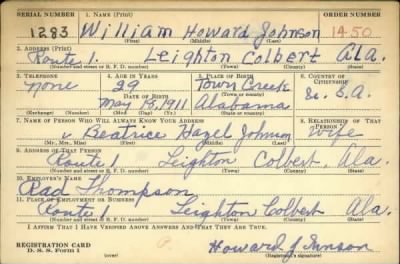 SERIAL NUMBER 1. NAME (Print) ORDER NUMBER
1283 William Howard Johnson 1450
(First) (Middle) (Last)
2. ADDRESS (Print)
Route 1. Leighton Colbert Ala.
(Number and street or R. F. D. number) (Town) (County) (State)
3. TELEPHONE 4. AGE IN YEARS 5. PLACE OF BIRTH 6. COUNTRY OF CITIZENSHIP
none 29 Town Creek
DATE OF BIRTH (Town or county)
May 15, 1911 Alabama U. S. A.
(Exchange) (No.) (Mo.) (Day) (Yr.) (State or country)
7. NAME OF PERSON WHO WILL ALWAYS KNOW YOUR ADDRESS 8. RELATIONSHIP OF THAT PERSON
Beatrice Hazel Johnson Wife
(Mr., Mrs., Miss) (First) (Middle) (Last)
9. ADDRESS OF THAT PERSON
Route 1 Leighton Colbert, Ala.
(Number and street or R. F. D. number) (Town) (County) (State)
10. EMPLOYER'S NAME
Rad Thompson
11. PLACE OF EMPLOYMENT OR BUSINESS
Route 1 Leighton Colbert Ala.
(Number and street or R. F. D. number) (Town) (County) (State)
I AFFIRM THAT I HAVE VERIFIED ABOVE ANSWERS AND THAT THEY ARE TRUE.
REGISTRATION CARD
D. S. S. Form 1 Howard Johnson
(Registrant's signature)